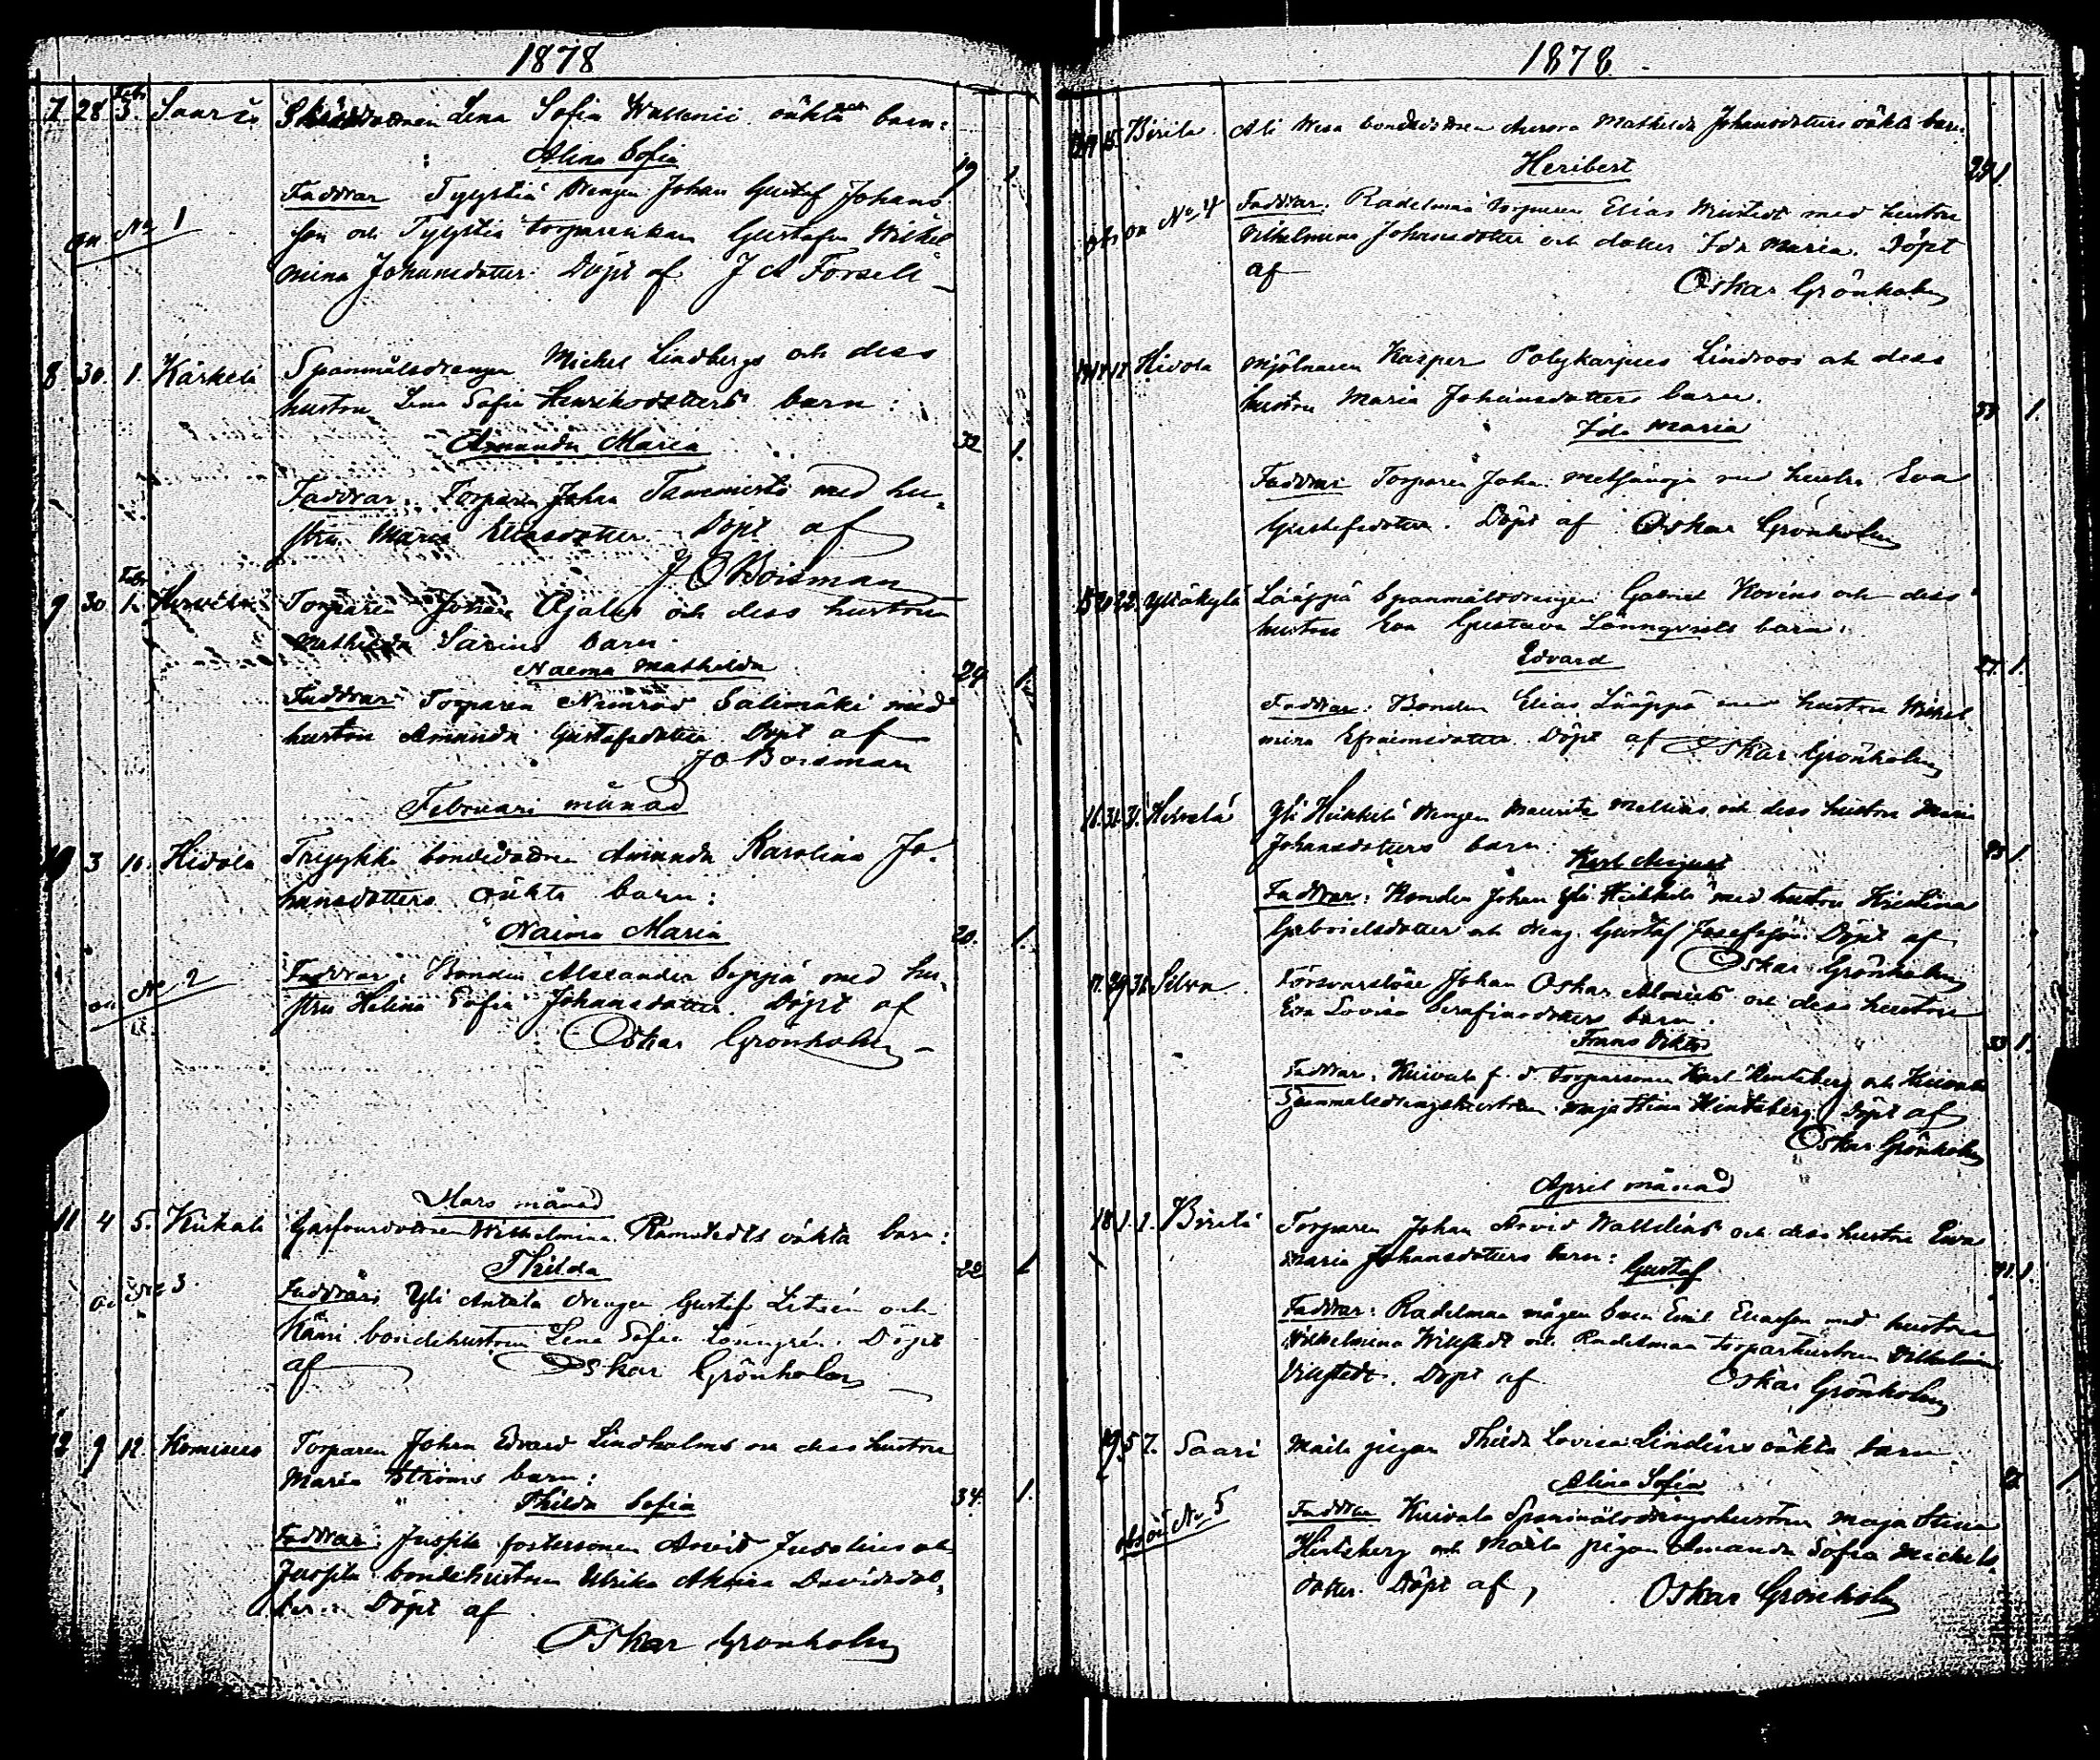 1878
7 28 Febr 3. Saaris Lena Sofia oäkta barn:
Alina Sofia
19 1
Faddrar Tyystiä drengen Johan Gustaf Johans
son och Tyystiä torparenkan Gustafva Wilhel
oä No 1
mina Johansdotter. Döpt af J A Forsell
8 30. 1. Kärkelä Spanmålsdrengen Michel Lindbergs och dess
hustru Lena Sofia Henriksdotters barn:
Amanda Maria
32 1.
Faddrar. Torparen Johan Tammisto med hu-
stru Maria Eliasdotter. Döpt af
J O Boisman
9 30 Febr 1. Torparen Johan Ojalas och dess hustru
Mathilda Sarins barn
Naema Mathilda
29 1.
Faddrar Torparen Nimrod Salimäki med
hustru Amanda Gustafsdotter. Döpt af
J O Boisman
Februari månad
10 3 16. Hivola Tryykki bondedottren Amanda Karolina Jo-
hansdotters oäkta barn:
Naima Maria
20. 1.
Faddrar: Bonden Alexander Seppä med hu-
stru Helena Sofia Johansdotter. Döpt af
oä No 2
Oskar Grönholm
Mars månad
11 4 5. Wilhelmina Ramstedts oäkta barn:
Thilda
22 1
Faddrar: Yli Antola drengen Gustaf och
oä No 3
Kääri bondehustrun Lena Sofia Lönngrén. Döpt
af Oskar Grönholm
12 9 12. Torparen Johan Edvard Lindholms och dess hustru
Maria Ströms barn:
Thilda Sofia
34. 1.
Faddrar: Jussila fostersonen Arvid Juselius och
Jussila bondehustrun Ulrika Davidsdot-
ter. Döpt af
Oskar Grönholm
1878
15. Ali Wesa bondedottren Aurora Mathilda Johansdotters oäkta barn
Heribert
29 1.
Faddrar: Radelmaa torparen Elias med hustru
oä No 4
Vilhelmina Johansdotter och dotter Ida Maria. Döpt
af
Oskar Grönholm
14 17 17 Hivola Mjölnaren Kasper Polykarpus Lindroos och dess
hustru Maria Johansdotters barn.
33 1.
Ida Maria
Faddrar Torparen Johan Metsänoja med hustru Eva
Gustafsdotter. Döpt af Oskar Grönholm
15 20 22. Yliskylä Lääppä Spanmålsdrengen Gabriel och dess
hustru Eva Gustava Lönnqvists barn:
Edvard
27. 1.
Faddrar: Bonden Elias Lääppä med hustru Wilhel
mina Efraimsdotter. Döpt af Oskar Grönholm
16. 30. 31. Yli Heikkilä drengen Mauritz och dess hustru Maria
Johansdotters barn:
Karl August
25 1.
Faddrar: Bonden Johan Yli Heikkilä med hustru Kristina
Gabrielsdotter och dreng. Gustaf Josefsson. Döpt af
Oskar Grönholm
17. 29 31. Försvarslöse Johan Oskar och dess hustru
Eva Lovisa Serafinsdotters barn.
Frans Viktor
33 1.
Faddrar: Kuivala f. d. torparsonen Karl Hintsberg och Kuivala
Spanmålsdrengshustrun Maja Stina Hintsberg. Döpt af
Oskar Grönholm
April månad
18. 1. 1. Torparen Johan Arvid och dess hustru Eva
Maria Johansdotters barn:
Gustaf
41. 1.
Faddrar: Radelmaa mågen Sven Emil Eliasson med hustru
Wilhelmina Willstedt och Radelmaa torparhustrun Vilhelmina
Villstedt. Döpt af
Oskar Grönholm
19. 5 7. Saari pigan Thilda Lovisa Lindérs oäkta barn
Alina Sofia
Faddrar Kuivala Spanmålsdrengshustrun Maja Stina
oä No 5
Hintsberg och pigan Amanda Sofia Michels
dotter. Döpt af,
Oskar Grönholm